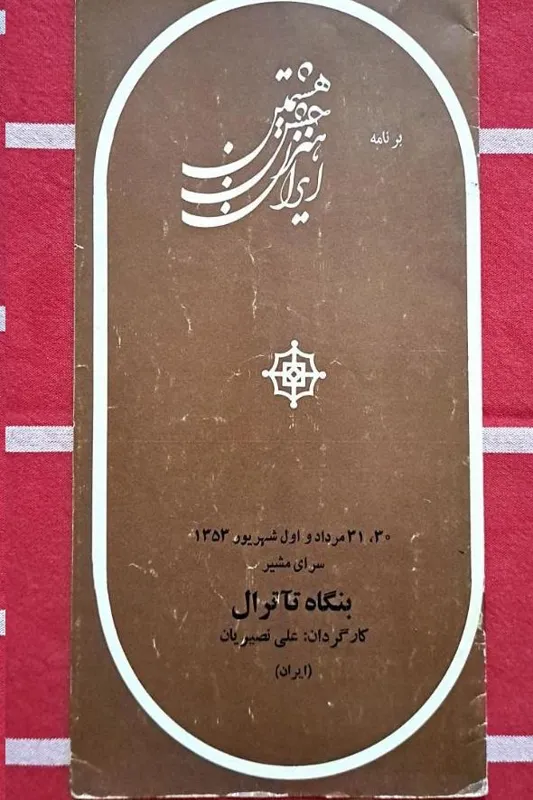 برنامه
هشتمین
جشن
هنر
ایران
۳۰، ۳۱ مرداد و اول شهریور ۱۳۵۳
سرای مشیر
بنگاه تآترال
کارگردان: علی نصیریان
(ایران)